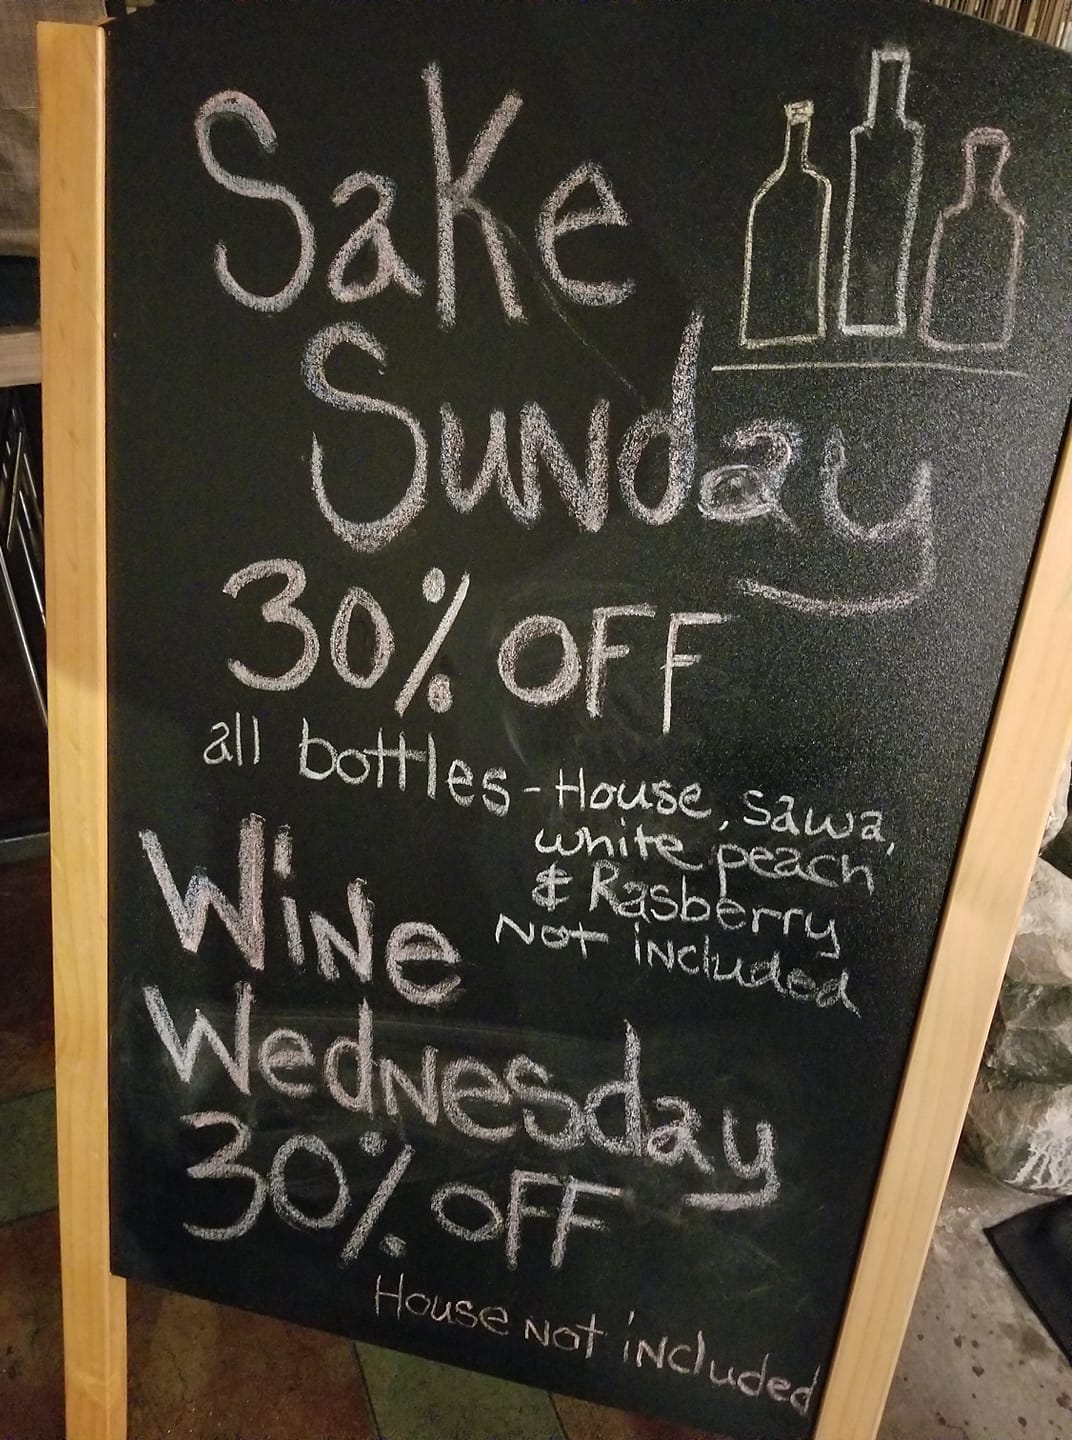 Sake
Sunday
30% OFF
all bottles - House, sawa,
white peach
& Rasberry
Not included
Wine
Wednesday
30% OFF
House not included